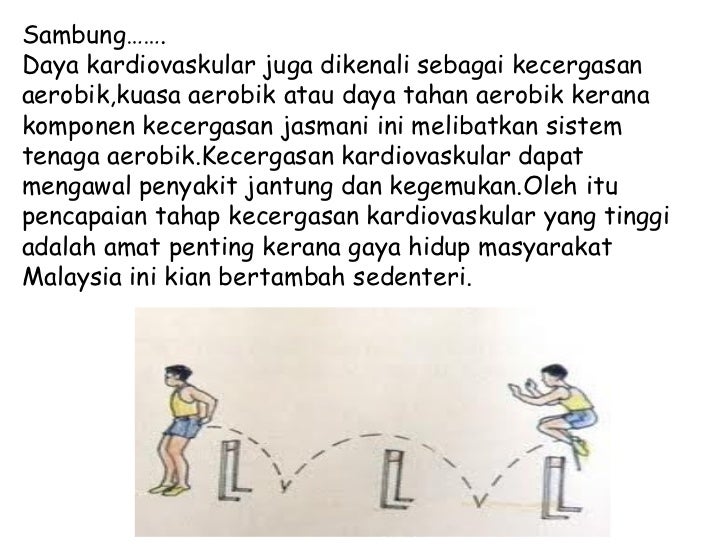 Sambung…….
Daya kardiovaskular juga dikenali sebagai kecergasan
aerobik,kuasa aerobik atau daya tahan aerobik kerana
komponen kecergasan jasmani ini melibatkan sistem
tenaga aerobik.Kecergasan kardiovaskular dapat
mengawal penyakit jantung dan kegemukan.Oleh itu
pencapaian tahap kecergasan kardiovaskular yang tinggi
adalah amat penting kerana gaya hidup masyarakat
Malaysia ini kian bertambah sedenteri.